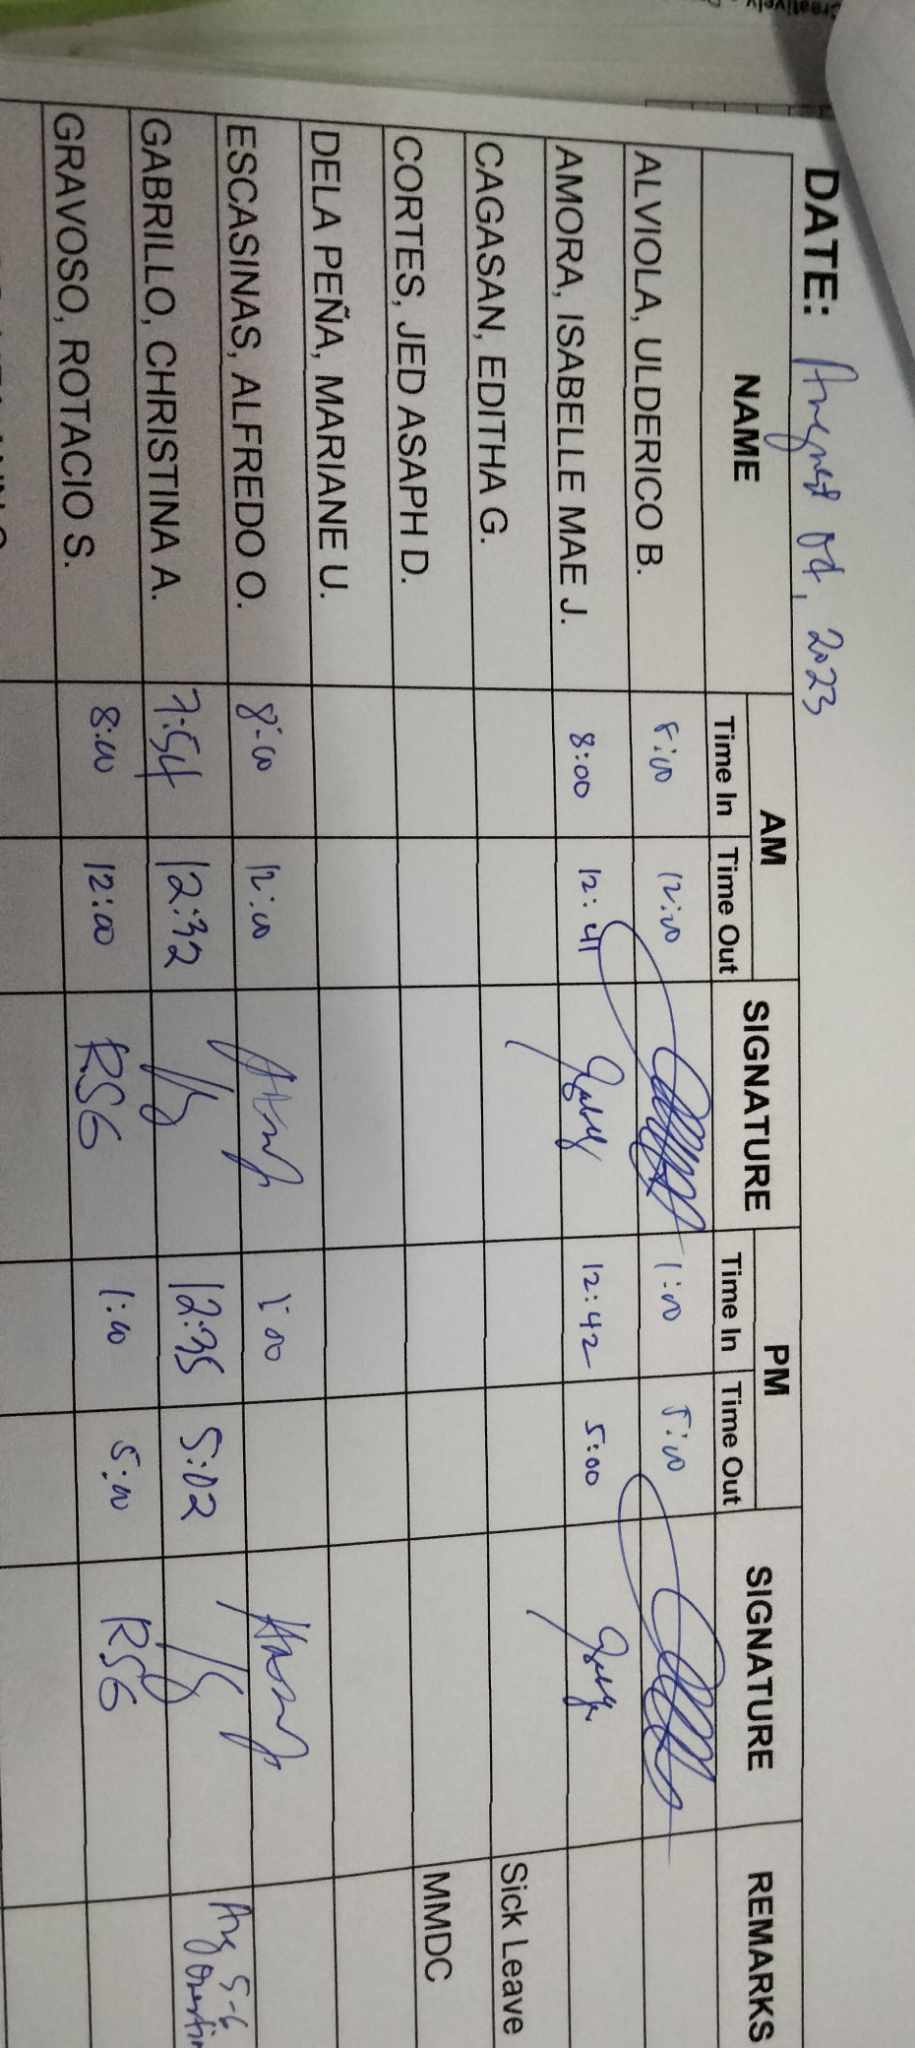 Creatively
DATE: August 04, 2023
NAME AM SIGNATURE PM SIGNATURE REMARKS
Time In Time Out Time In Time Out
ALVIOLA, ULDERICO B. 8:00 12:00 1:00 5:00
AMORA, ISABELLE MAE J. 8:00 12:41 12:42 5:00
CAGASAN, EDITHA G. Sick Leave
CORTES, JED ASAPH D. MMDC
DELA PEÑA, MARIANE U.
ESCASINAS, ALFREDO O. 8:00 12:00 1:00
GABRILLO, CHRISTINA A. 7:54 12:32 12:35 5:02 Aug 5-6
GRAVOSO, ROTACIO S. 8:00 12:00 RSG 1:00 5:00 RSG